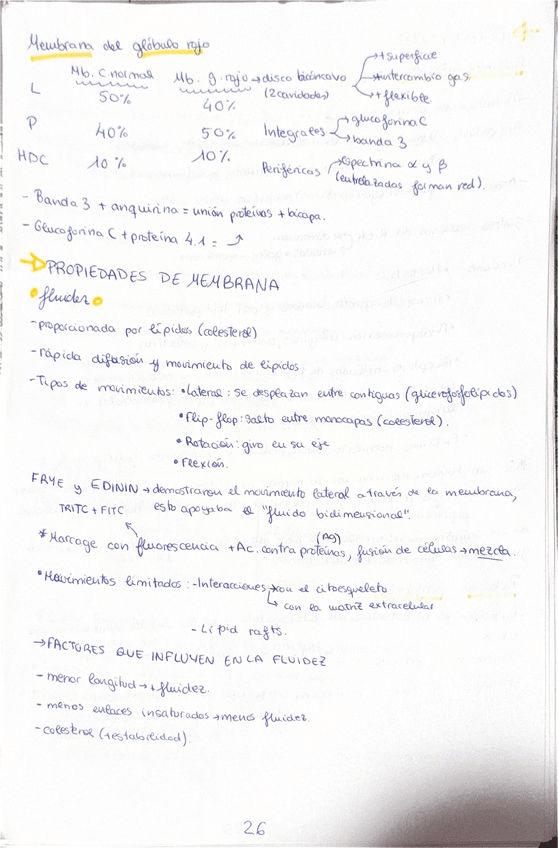 Membrana del glóbulo rojo
Mb. C. normal Mb. g. rojo → disco bicóncavo (2 cavidades) → + superficie
→ + intercambio gas
→ + flexible
L 50% 40%
P 40% 50% Integrales → glucoforina C
→ banda 3
HDC 10% 10% Periféricos → espectrina α y β
(entrelazadas forman red).
- Banda 3 + anquirina = unión proteínas + bicapa.
- Glucoforina C + proteína 4.1 = ↗
→ PROPIEDADES DE MEMBRANA
• fluidez •
- proporcionada por lípidos (colesterol)
- rápida difusión y movimiento de lípidos.
- Tipos de movimientos: • lateral: se desplazan entre contiguas (glicerofosfolípidos)
• Flip-flop: salto entre monocapas (colesterol).
• Rotación: giro en su eje
• Flexión.
FRYE y EDININ → demostraron el movimiento lateral a través de la membrana,
TRITC + FITC esto apoyaba el "fluido bidimensional".
(Ag)
* Marcage con fluorescencia + Ac. contra proteínas, fusión de células → mezcla.
• Movimientos limitados: - Interacciones → con el citoesqueleto
↳ con la matriz extracelular
- Lipid rafts.
→ FACTORES QUE INFLUYEN EN LA FLUIDEZ
- menor longitud → + fluidez.
- menos enlaces insaturados → menos fluidez.
- colesterol (+ estabilidad).
26